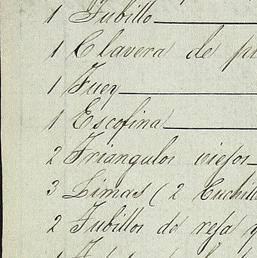 1 Tubillo
1 Clavera de
1 Juey
1 Escofina
2 Triangulos viejos
3 Limas (2 Cuchill
2 Tubillos de reja
1